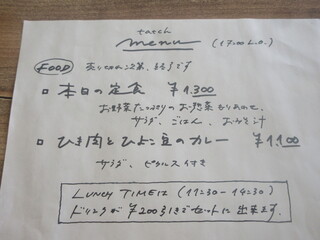 menu
(17:00 L.O.)
FOOD 売り切れ次第、終了です
本日の定食 ¥1,300
お野菜たっぷりのお惣菜もりあわせ、
サラダ、ごはん、おみそ汁
ひき肉とひよこ豆のカレー ¥1,100
サラダ、ピクルス付き
LUNCH TIMEは (11:30-14:30)
ドリンクが ¥200引きでセットに出来ます。